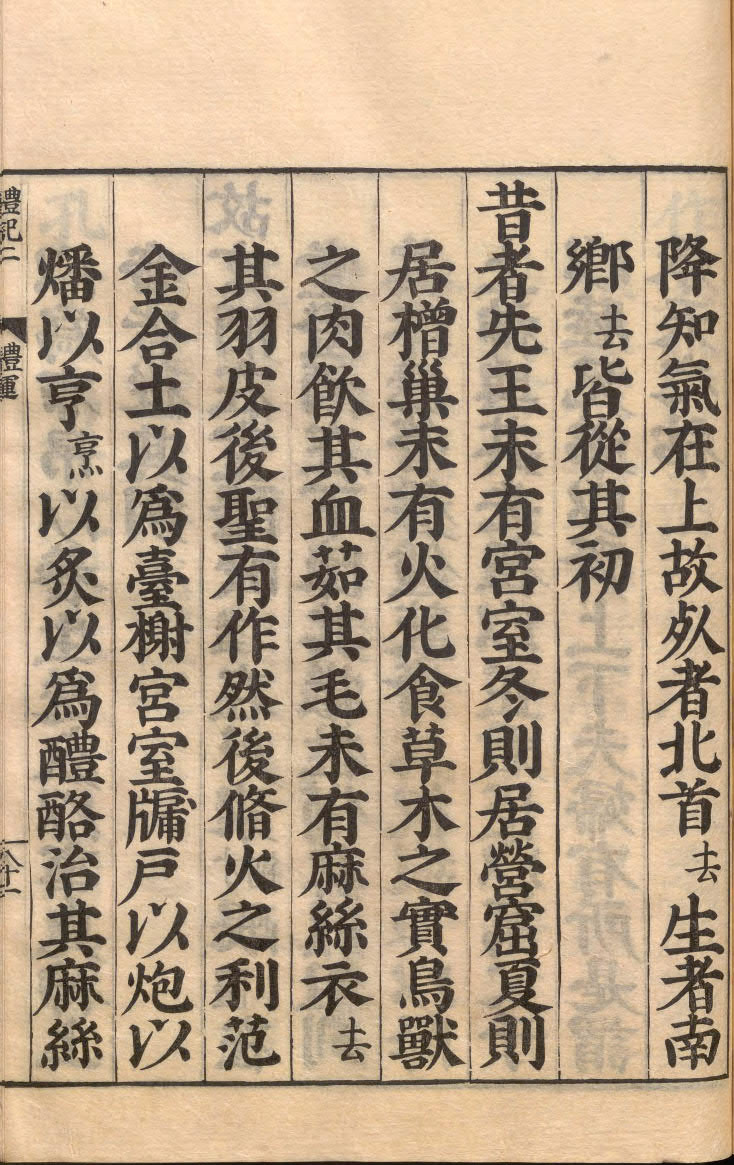 降知氣在上故死者北首去生者南
鄉去皆從其初
昔者先王未有宮室冬則居營窟夏則
居橧巢未有火化食草木之實鳥獸
之肉飮其血茹其毛未有麻絲衣去
其羽皮後聖有作然後脩火之利范
金合土以爲臺榭宮室牖戶以炮以
燔以亨烹以炙以爲醴酪治其麻絲
禮記二 禮運